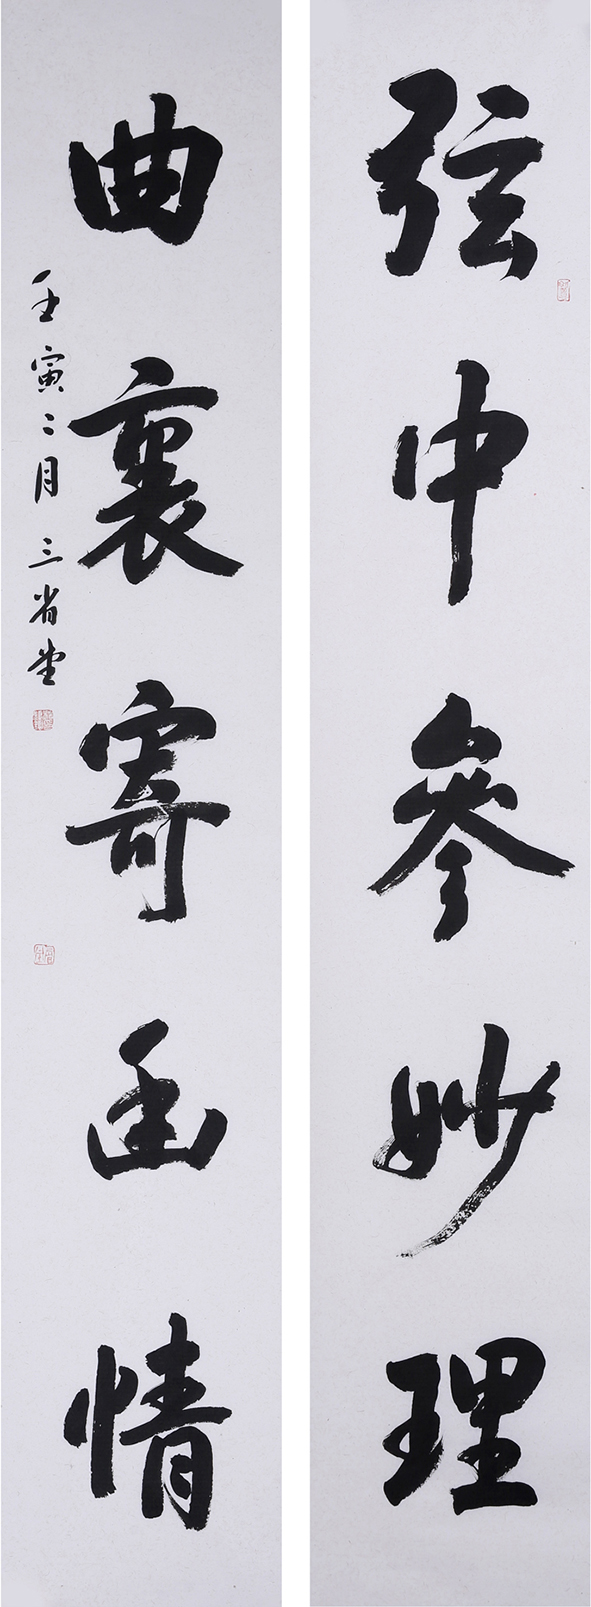 弦中參妙理
曲裏寄幽情
壬寅二月三省堂